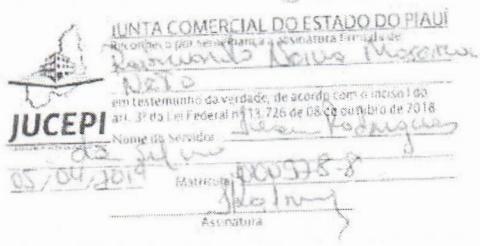 JUNTA COMERCIAL DO ESTADO DO PIAUÍ
Reconheço por semelhança a assinatura firmada de
Raimundo Neiva Moreira
Neto
em testemunho da verdade, de acordo com o inciso I do
art. 3º da Lei Federal nº 13.726 de 08 de outubro de 2018
JUCEPI
Nome do Servidor Rodrigues
da Silva
05/04/2019 Matrícula
Assinatura